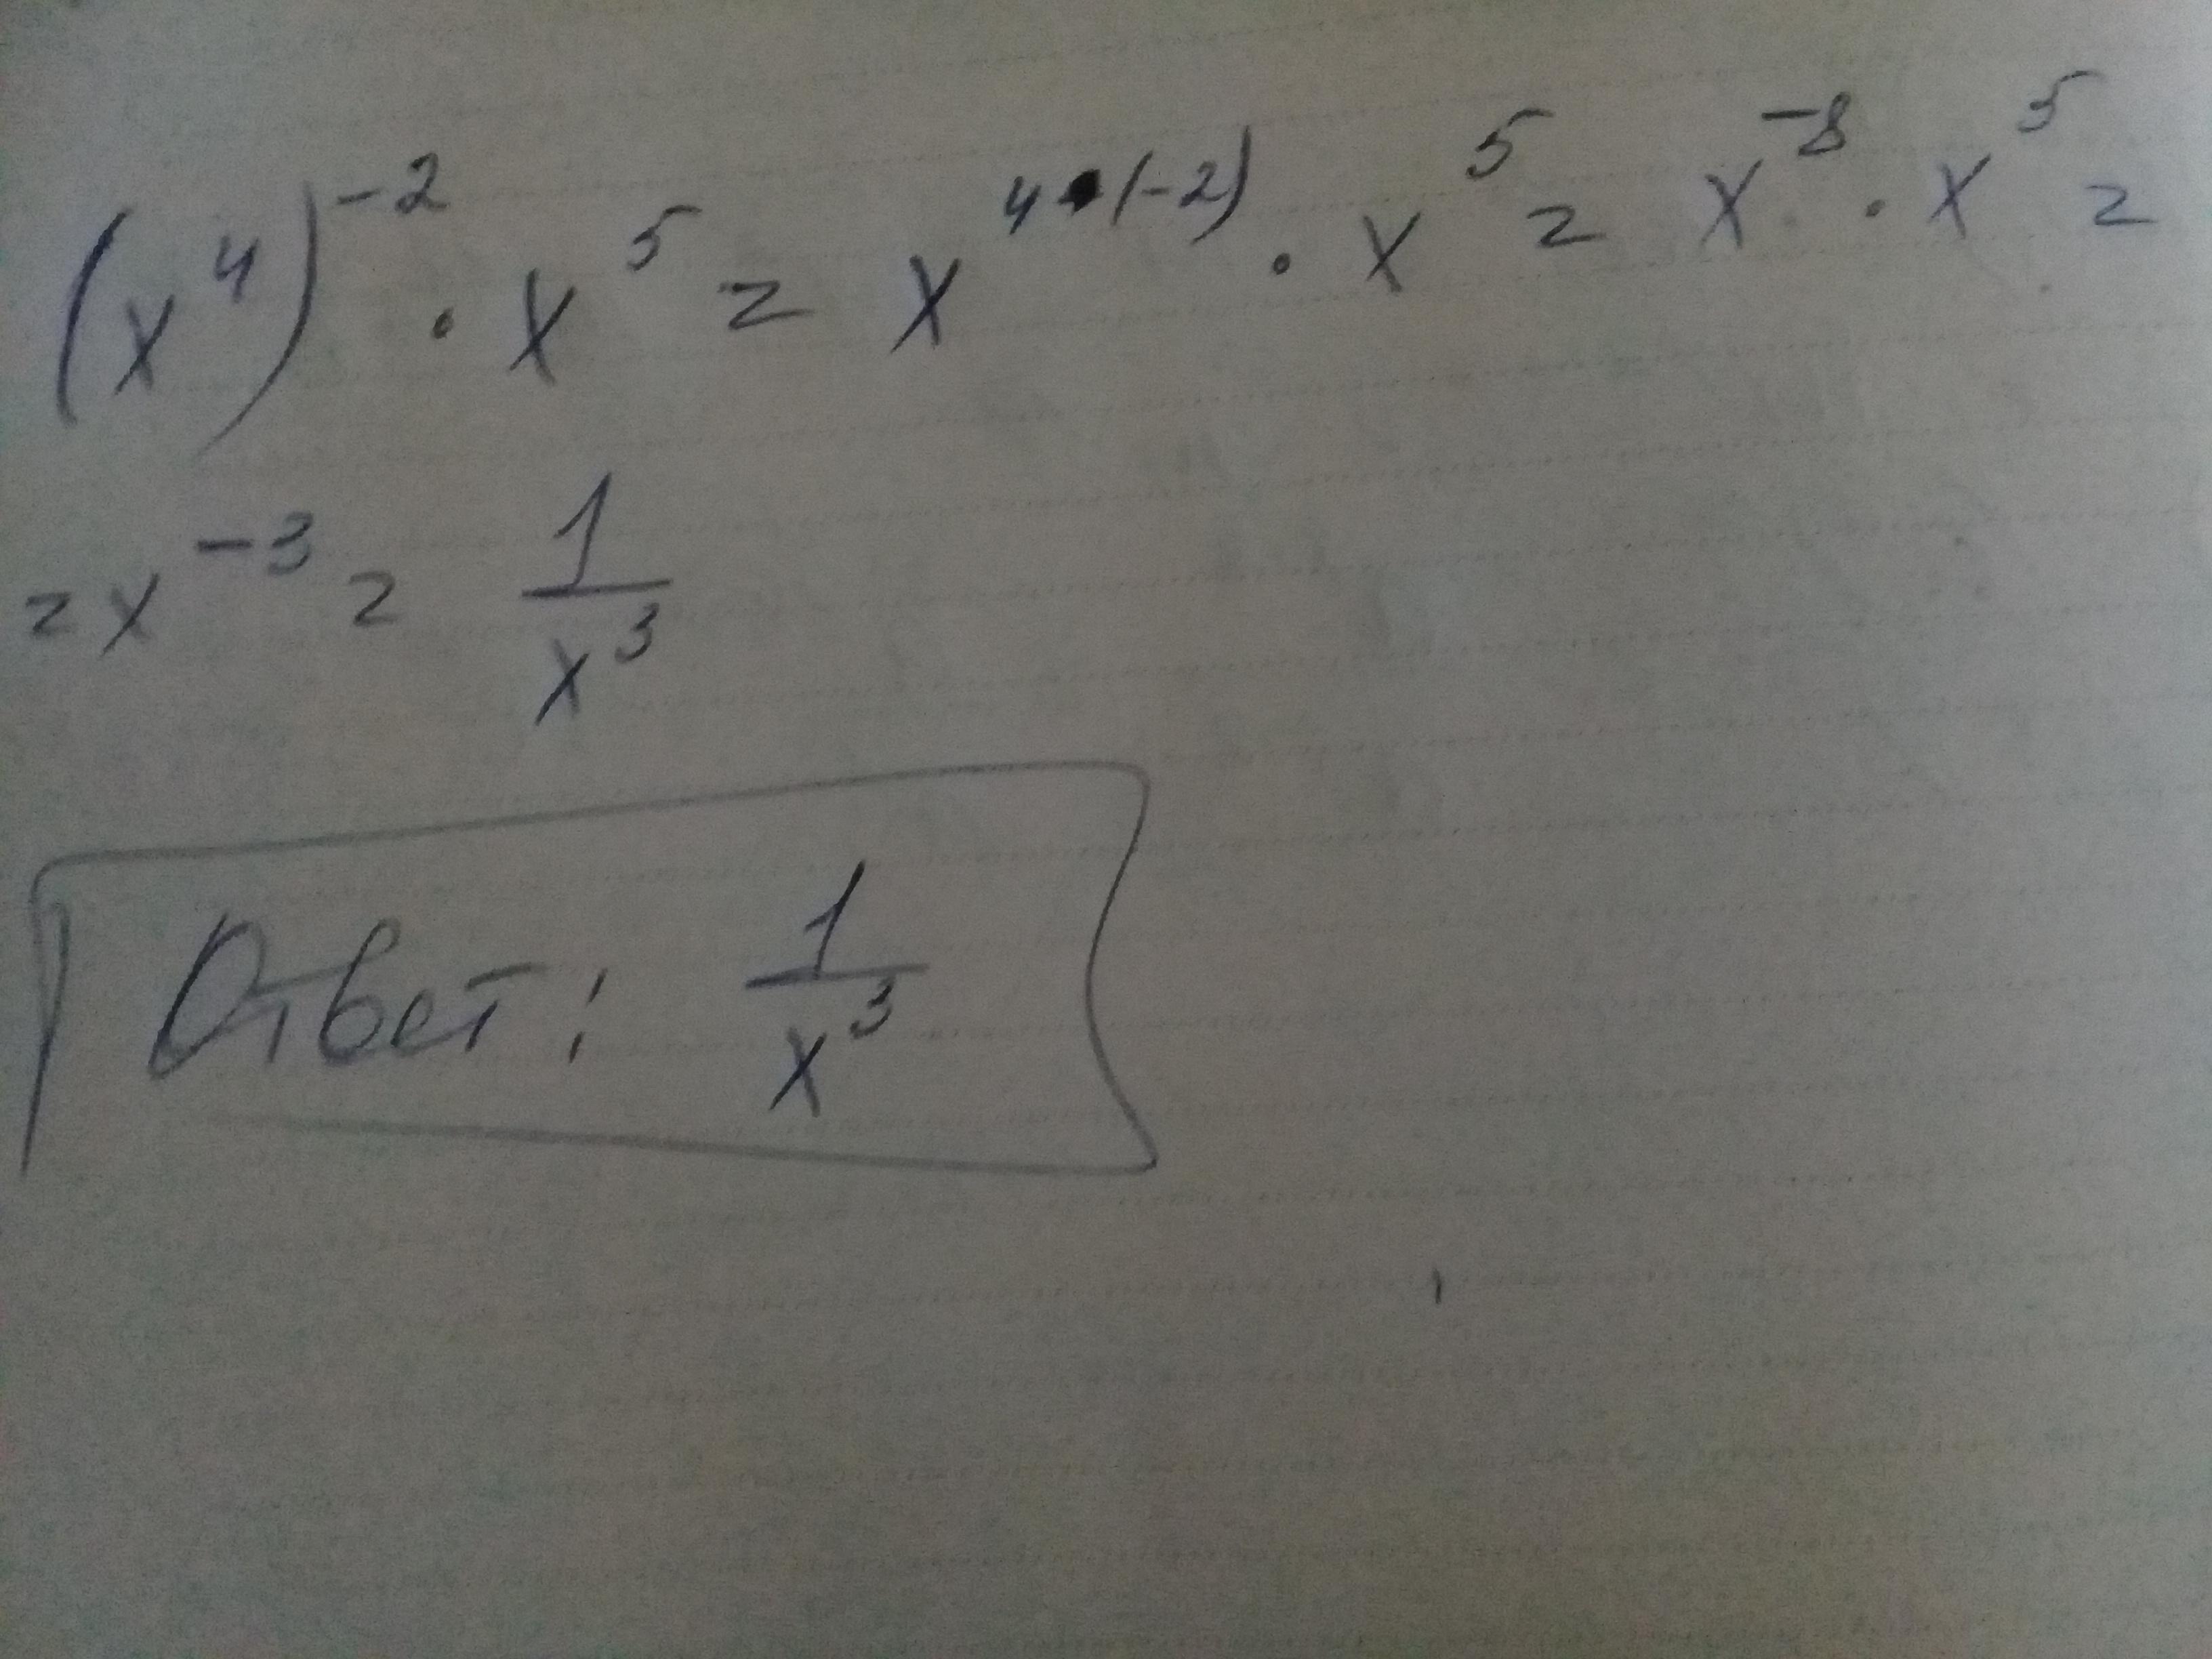 (x⁴)⁻² · x⁵ = x⁴·⁽⁻²⁾ · x⁵ = x⁻⁸ · x⁵ =
= x⁻³ = 1/x³
Ответ: 1/x³